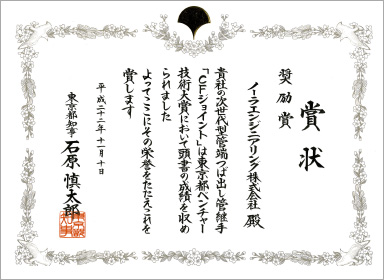 賞状
奨励賞
ノーラエンジニアリング株式会社 殿
貴社の次世代型管端つば出し管継手
「CFジョイント」は東京都ベンチャー
技術大賞において頭書の成績を収め
られました
よってここにその栄誉をたたえこれを
賞します
平成二十二年十一月十日
東京都知事 石原慎太郎